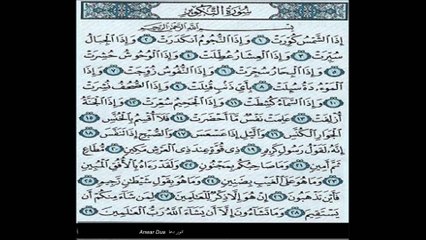 سُورَةُ التَّكْوِيرِ
بِسْمِ اللَّهِ الرَّحْمَٰنِ الرَّحِيمِ
إِذَا الشَّمْسُ كُوِّرَتْ ١ وَإِذَا النُّجُومُ انكَدَرَتْ ٢ وَإِذَا الْجِبَالُ
سُيِّرَتْ ٣ وَإِذَا الْعِشَارُ عُطِّلَتْ ٤ وَإِذَا الْوُحُوشُ حُشِرَتْ
٥ وَإِذَا الْبِحَارُ سُجِّرَتْ ٦ وَإِذَا النُّفُوسُ زُوِّجَتْ ٧ وَإِذَا
الْمَوْءُۥدَةُ سُئِلَتْ ٨ بِأَيِّ ذَنبٍ قُتِلَتْ ٩ وَإِذَا الصُّحُفُ نُشِرَتْ
١٠ وَإِذَا السَّمَاءُ كُشِطَتْ ١١ وَإِذَا الْجَحِيمُ سُعِّرَتْ ١٢ وَإِذَا الْجَنَّةُ
أُزْلِفَتْ ١٣ عَلِمَتْ نَفْسٌ مَّا أَحْضَرَتْ ١٤ فَلَا أُقْسِمُ بِالْخُنَّسِ ١٥
الْجَوَارِ الْكُنَّسِ ١٦ وَاللَّيْلِ إِذَا عَسْعَسَ ١٧ وَالصُّبْحِ إِذَا تَنَفَّسَ ١٨
إِنَّهُ لَقَوْلُ رَسُولٍ كَرِيمٍ ١٩ ذِي قُوَّةٍ عِندَ ذِي الْعَرْشِ مَكِينٍ ٢٠ مُّطَاعٍ
ثَمَّ أَمِينٍ ٢١ وَمَا صَاحِبُكُم بِمَجْنُونٍ ٢٢ وَلَقَدْ رَآهُ بِالْأُفُقِ الْمُبِينِ
٢٣ وَمَا هُوَ عَلَى الْغَيْبِ بِضَنِينٍ ٢٤ وَمَا هُوَ بِقَوْلِ شَيْطَانٍ رَّجِيمٍ
٢٥ فَأَيْنَ تَذْهَبُونَ ٢٦ إِنْ هُوَ إِلَّا ذِكْرٌ لِّلْعَالَمِينَ ٢٧ لِمَن شَاءَ مِنكُمْ أَن
يَسْتَقِيمَ ٢٨ وَمَا تَشَاءُونَ إِلَّا أَن يَشَاءَ اللَّهُ رَبُّ الْعَالَمِينَ ٢٩
Anwar Dua انور دعا